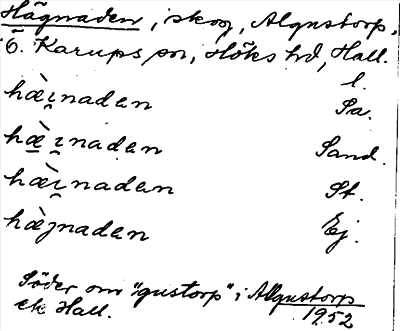 Hägnaden, skog, Algustorp,
Ö. Karups sn, Höks hd, Hall.
l.
hæ̀i̯naden Sa.
hæ̀ɪ̯naden Sand.
hæ̀i̯naden St.
hæ̀jnaden Ej.
Söder om "gustorp" i Algustorp
ek Hall. 1952